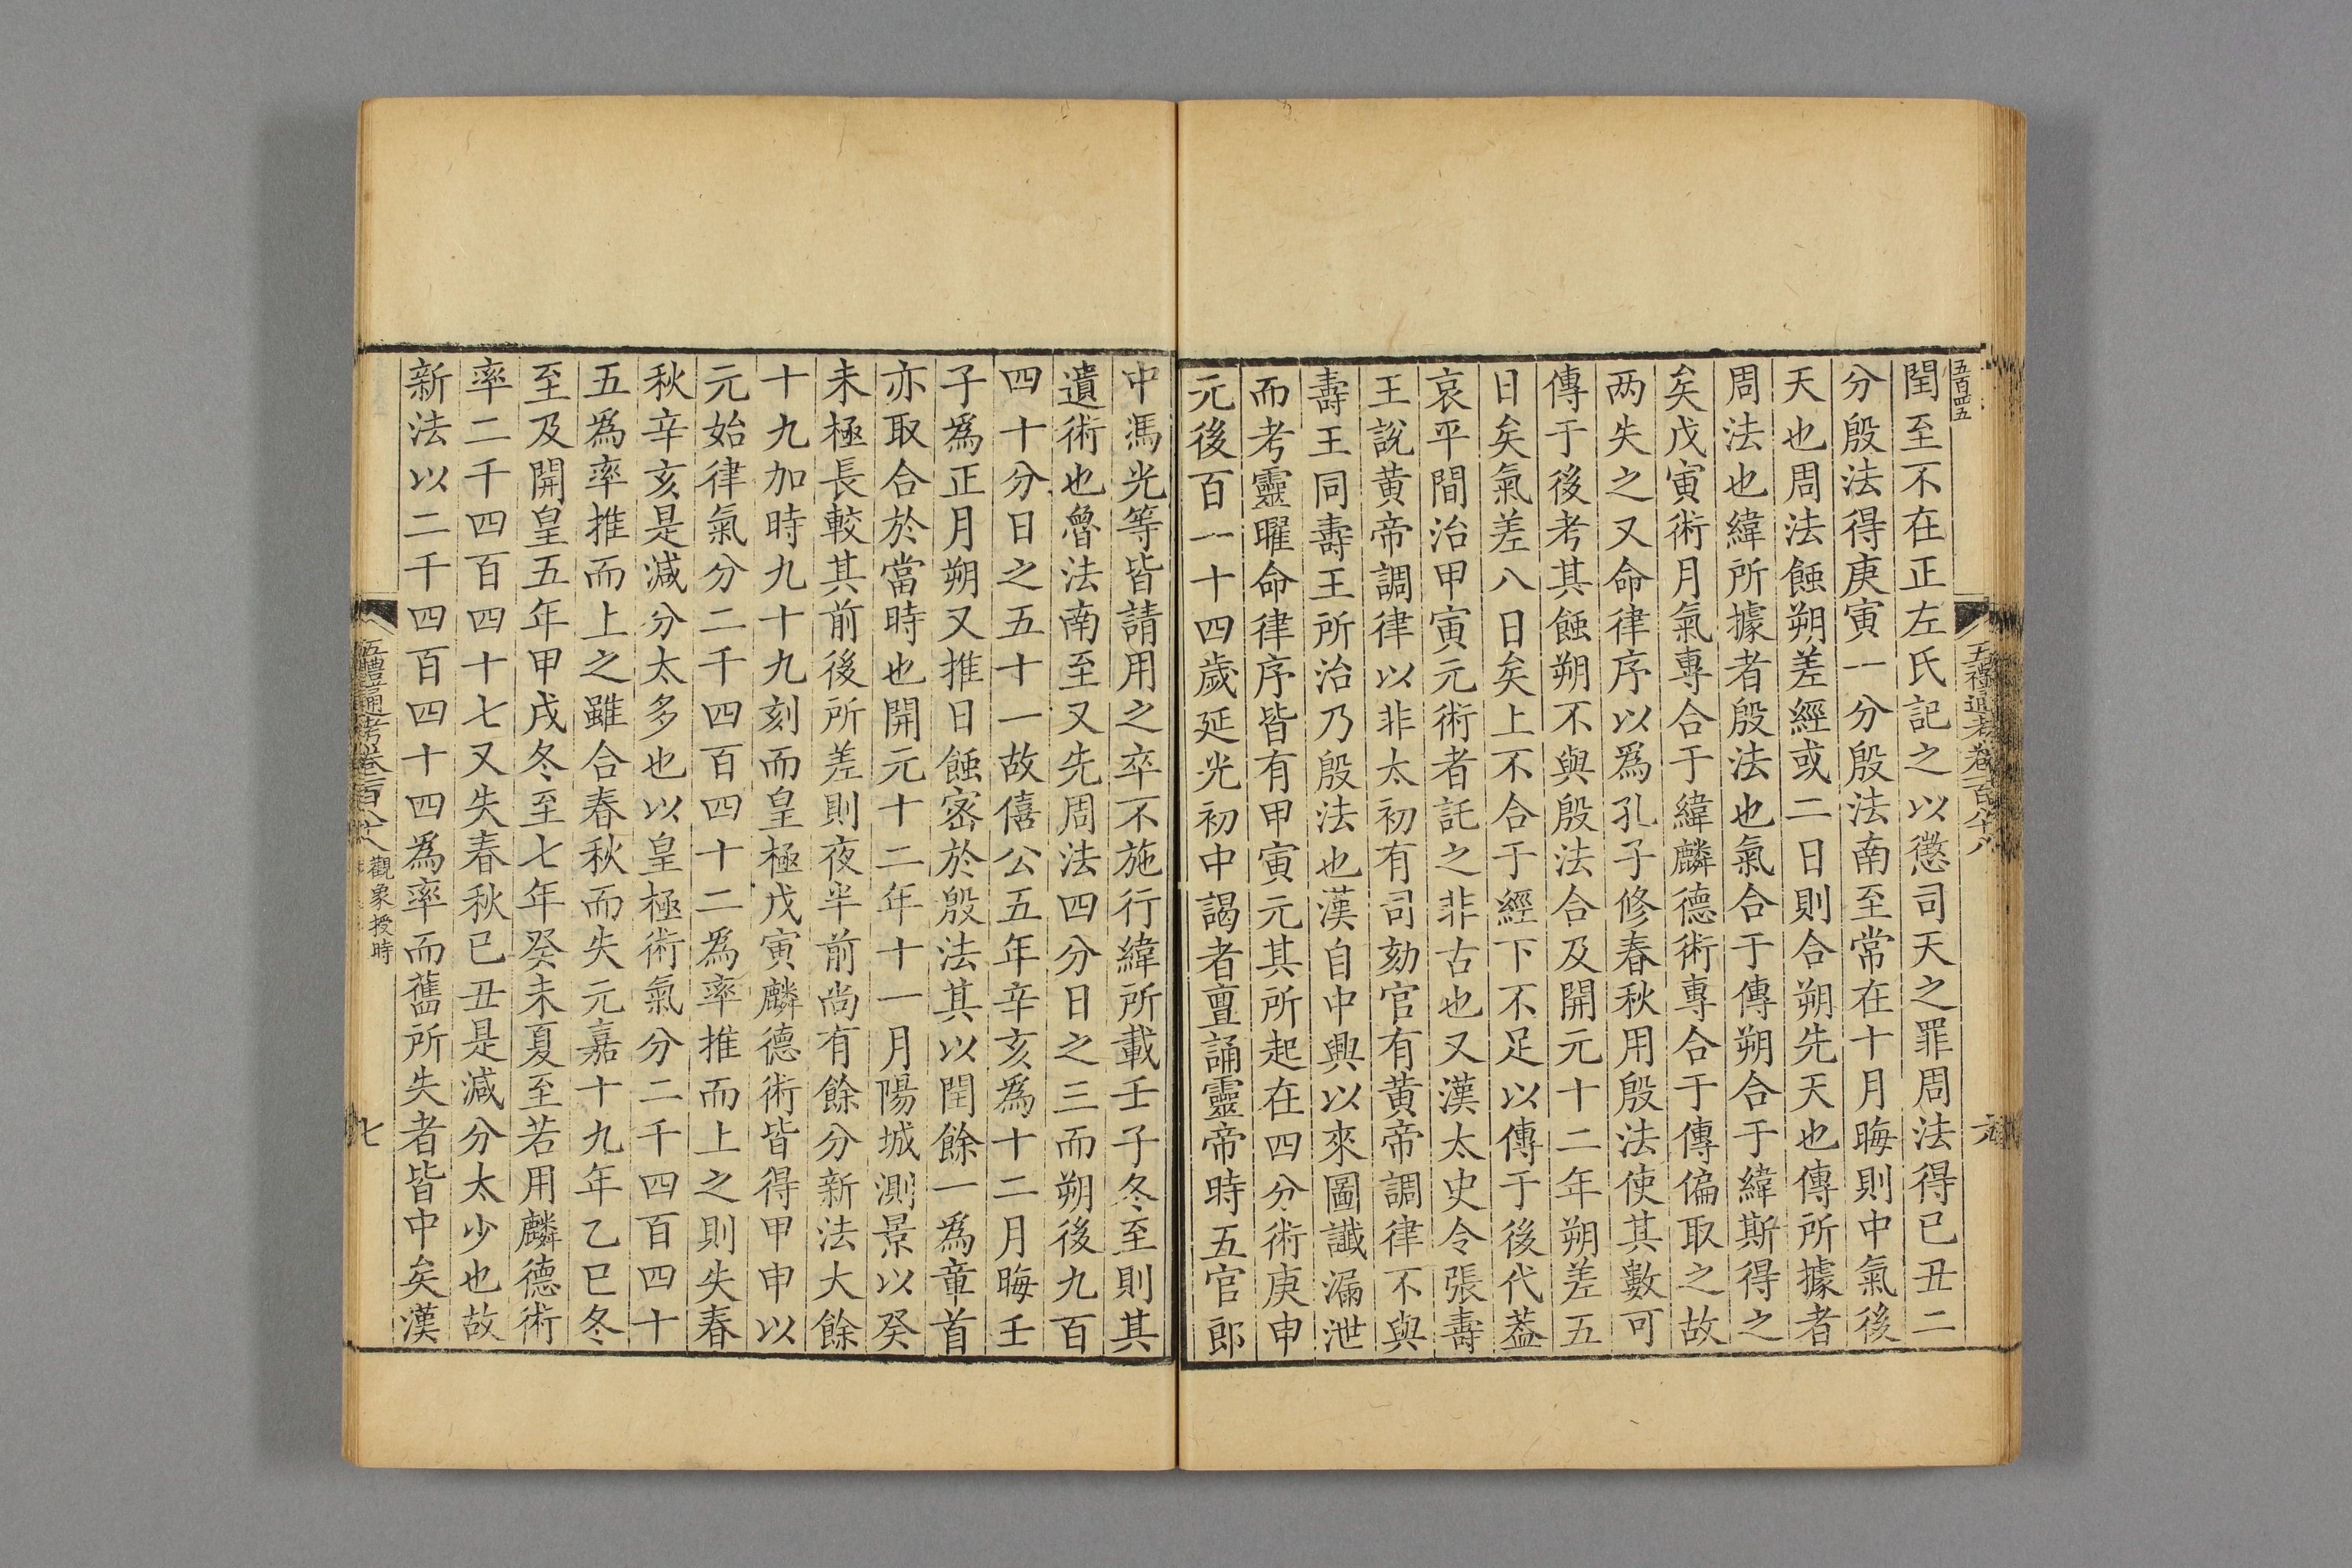 五百四五
閏至不在正左氏記之以懲司天之罪周法得己丑二
分殷法得庚寅一分殷法南至常在十月晦則中氣後
天也周法蝕朔差經或二日則合朔先天也傳所據者
周法也緯所據者殷法也氣合于傳朔合于緯斯得之
矣戊寅術月氣專合于緯麟德術專合于傳偏取之故
两失之又命律序以爲孔子修春秋用殷法使其數可
傳于後考其蝕朔不與殷法合及開元十二年朔差五
日矣氣差八日矣上不合于經下不足以傳于後代葢
哀平間治甲寅元術者託之非古也又漢太史令張壽
王說黄帝調律以非太初有司劾官有黄帝調律不與
壽王同壽王所治乃殷法也漢自中興以來圖讖漏泄
而考靈曜命律序皆有甲寅元其所起在四分術庚申
元後百一十四歲延光初中謁者亶誦靈帝時五官郎
中馮光等皆請用之卒不施行緯所載壬子冬至則其
遺術也魯法南至又先周法四分日之三而朔後九百
四十分日之五十一故僖公五年辛亥爲十二月晦壬
子爲正月朔又推日蝕宻於殷法其以閏餘一爲章首
亦取合於當時也開元十二年十一月陽城測景以癸
未極長較其前後所差則夜半前尚有餘分新法大餘
十九加時九十九刻而皇極戊寅麟德術皆得甲申以
元始律氣分二千四百四十二爲率推而上之則失春
秋辛亥是減分太多也以皇極術氣分二千四百四十
五爲率推而上之雖合春秋而失元嘉十九年乙巳冬
至及開皇五年甲戌冬至七年癸未夏至若用麟德術
率二千四百四十七又失春秋己丑是減分太少也故
新法以二千四百四十四爲率而舊所失者皆中矣漢
五禮通考卷一百八十八 觀象授時
七